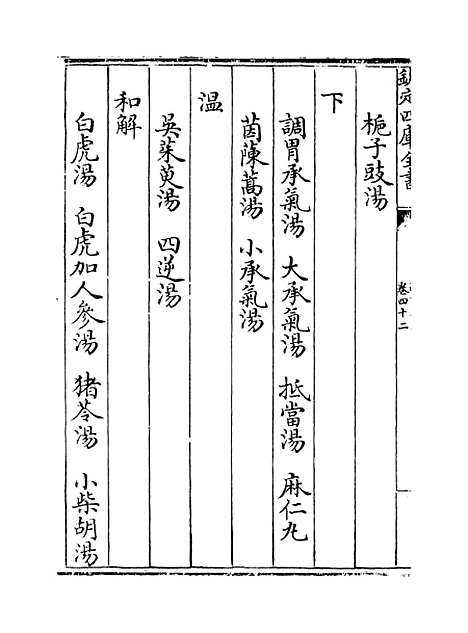 欽定四庫全書
卷四十二
梔子豉湯
下
調胃承氣湯　大承氣湯　抵當湯　麻仁丸
茵蔯蒿湯　小承氣湯
溫
吳茱萸湯　四逆湯
和解
白虎湯　白虎加人參湯　猪苓湯　小柴胡湯